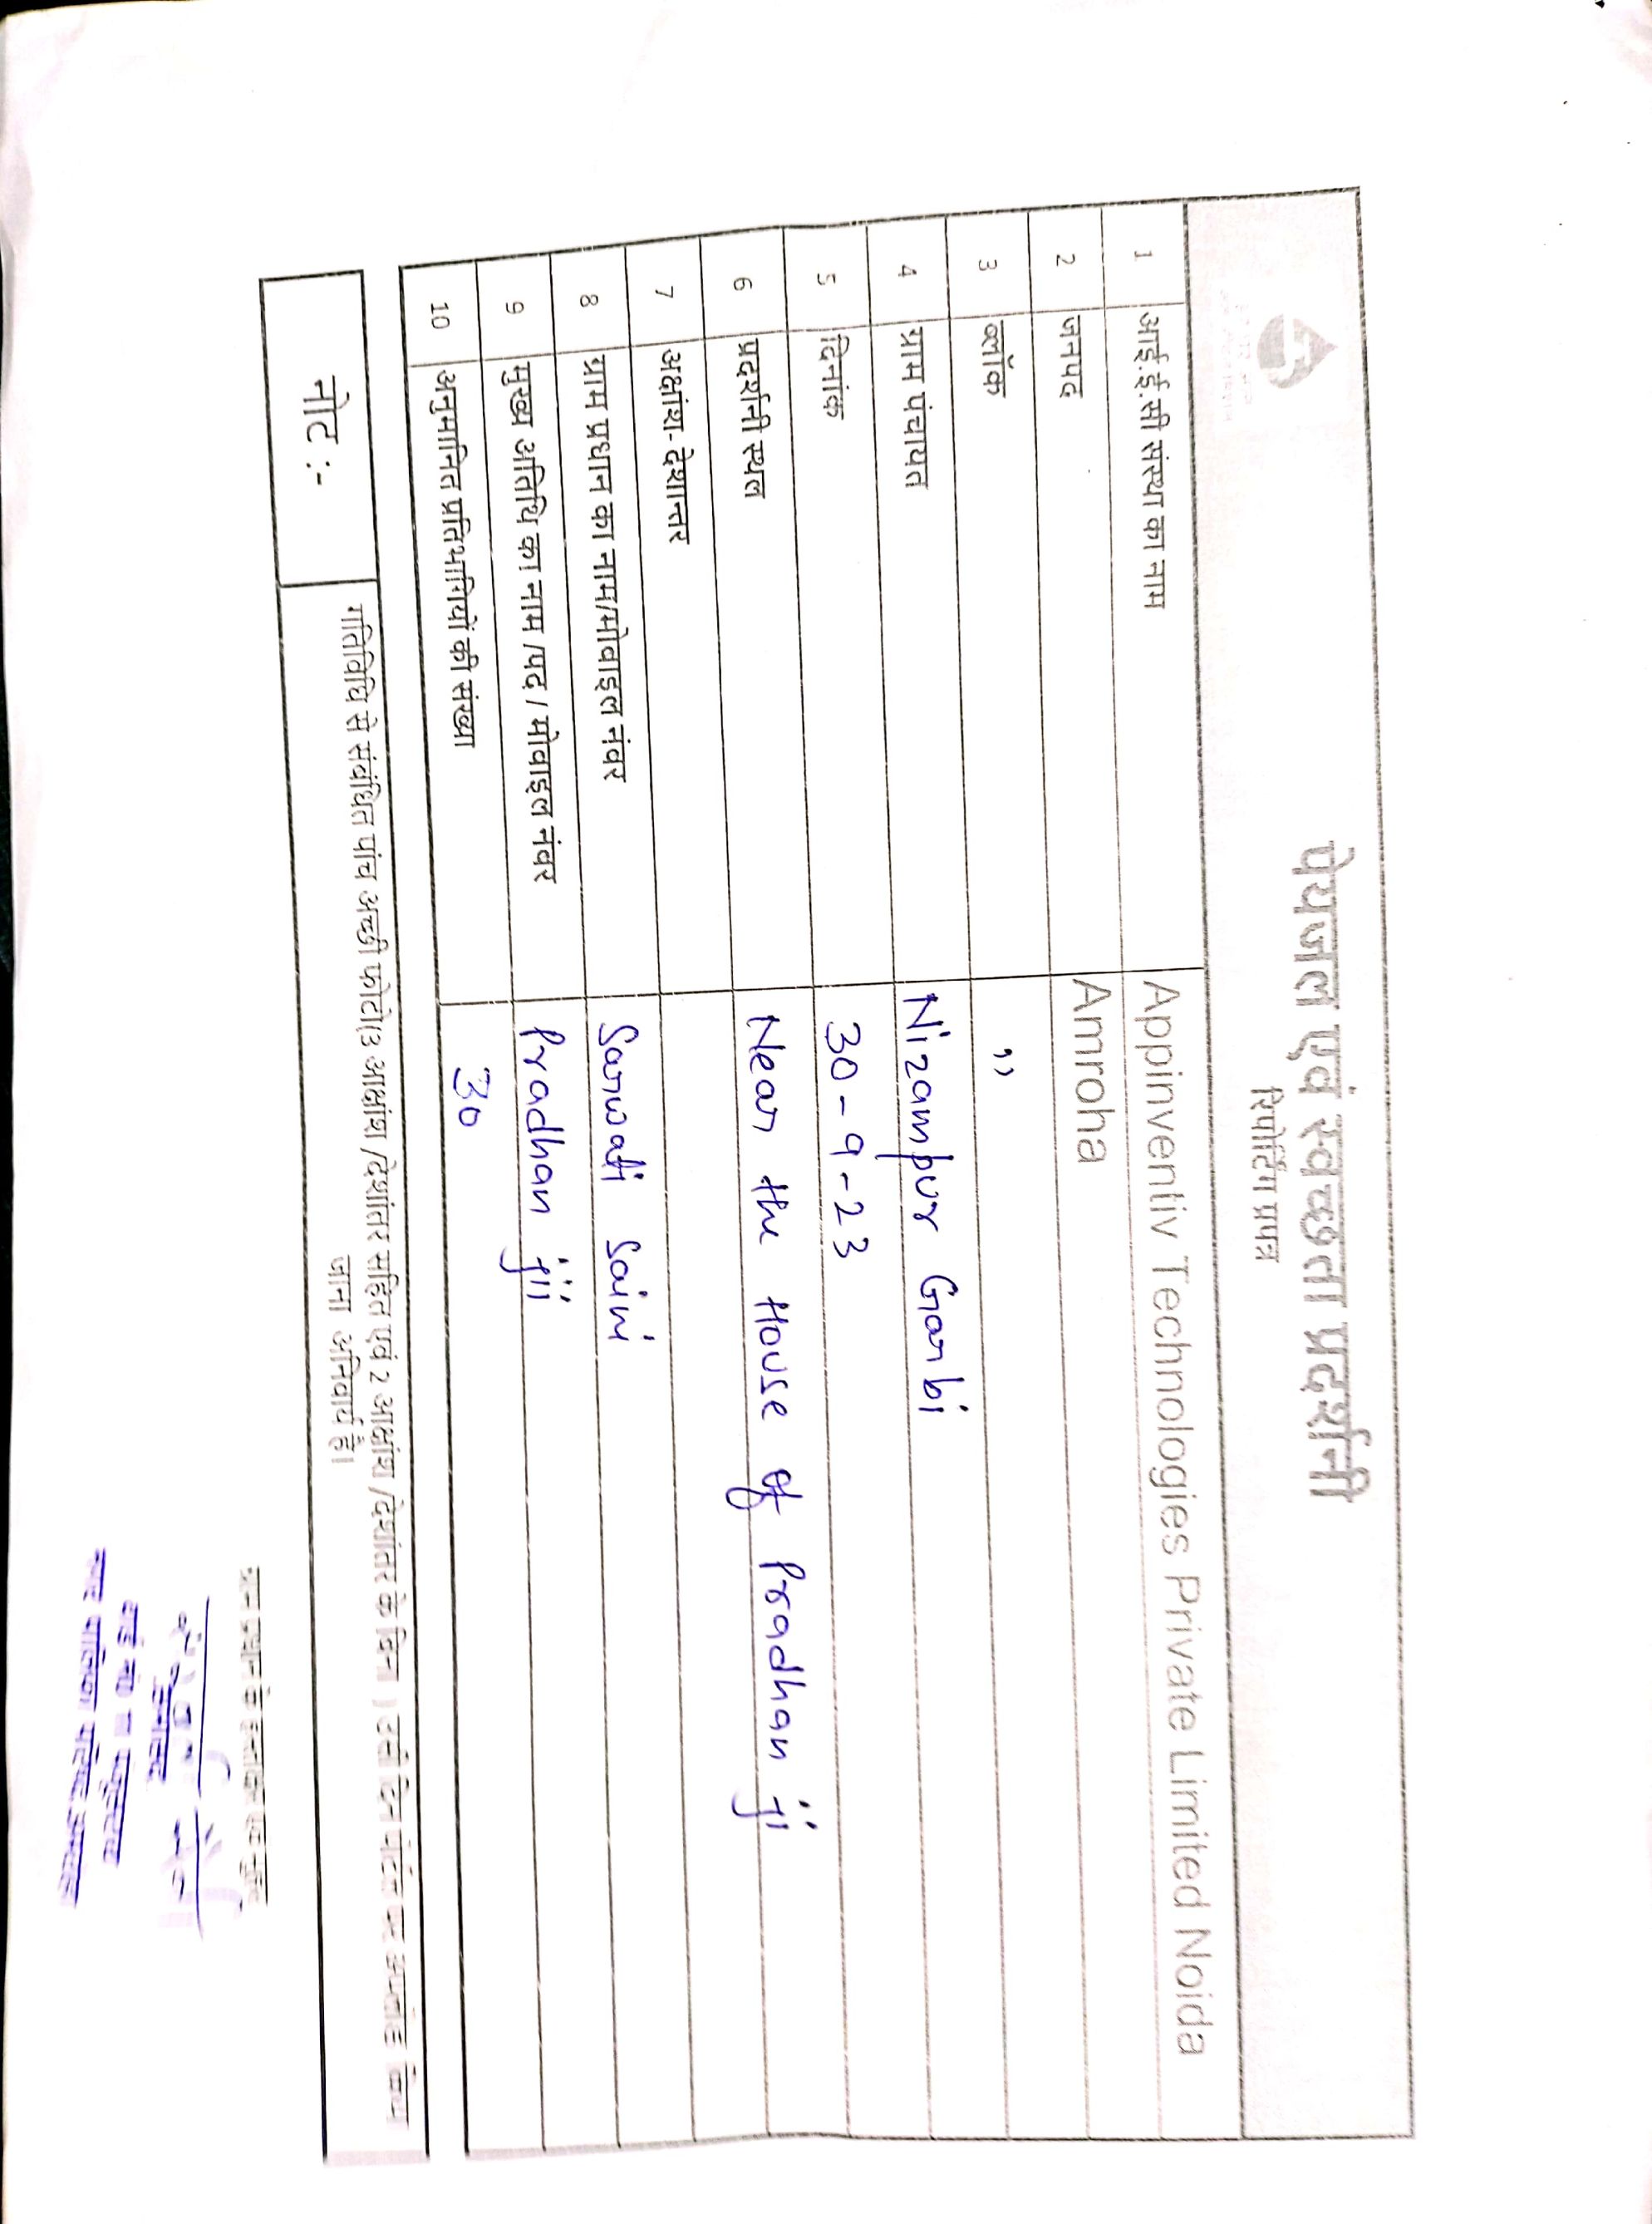 पेयजल एवं स्वच्छता प्रदर्शनी
रिपोर्टिंग प्रपत्र
1 आई.ई.सी संस्था का नाम Appinventiv Technologies Private Limited Noida
2 जनपद Amroha
3 ब्लॉक ,,
4 ग्राम पंचायत Nizampur Garbi
5 दिनांक 30-9-23
6 प्रदर्शनी स्थल Near the House of Pradhan ji
7 अक्षांश- देशान्तर
8 ग्राम प्रधान का नाम/मोबाइल नंबर Sarwati Saini
9 मुख्य अतिथि का नाम /पद / मोबाइल नंबर Pradhan jii
10 अनुमानित प्रतिभागियों की संख्या 30
नोट :-
गतिविधि से संबंधित पांच अच्छी फोटो(3 आक्षांश /देशांतर सहित एवं 2 आक्षांश /देशांतर के बिना ) उसी दिन पोर्टल पर अपलोड किया
जाना अनिवार्य है।